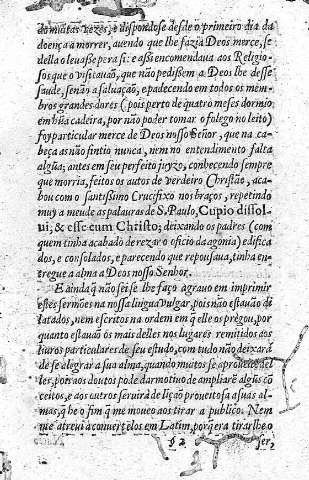 do muitas vezes, e dispondose desde o primeiro dia da
doença a morrer, auendo que lhe fazia Deos merce, se
della o leuasse pera si: e assi encomendaua aos Religio-
sos que o visitauaõ, que não pedissem a Deos lhe desse
saude, senão a saluação, e padecendo em todos os mem-
bros grandes dores (pois perto de quatro meses dormio
em hũa cadeira, por não poder tomar o folego no leito)
foy particular merce de Deos nosso Señor, que na ca-
beça as não sintio nunca, nem no entendimento falta
algũa; antes em seu perfeito juyzo, conhecendo sempre
que morria, feitos os autos de verdeiro Christão, aca-
bou com o santissimo Crucifixo nos braços, repetindo
muy a meude as palauras de S. Paulo, Cupio dissol-
ui, & esse cum Christo; deixando os padres (com
quem tinha acabado de rezar o officio da agonia) edifica
dos, e consolados, e parecendo que repousaua, tinha en-
tregue a alma a Deos nosso Senhor.
E ainda q̃ não sei se lhe faço agrauo em imprimir
estes sermões na nossa lingua vulgar, pois não estauão di
latados, nem escritos na ordem em q̃ elle os prègou, por
quanto estauaõ os mais delles nos lugares remitidos aos
liuros particulares de seu estudo, com tudo não deixarà
de se alegrar a sua alma, quando muitos se aproueitẽ del
les, pois aos doutos pode dar motiuo de ampliarẽ algũs cõ
ceitos, e aos outros seruirà de lição proueitosa a suas al-
mas, q̃ he o fim q̃ me moueo aos tirar a publico. Nem
me atreui a conuertelos em Latim, porq̃ era tirarlhe o
¶ 2 ser,